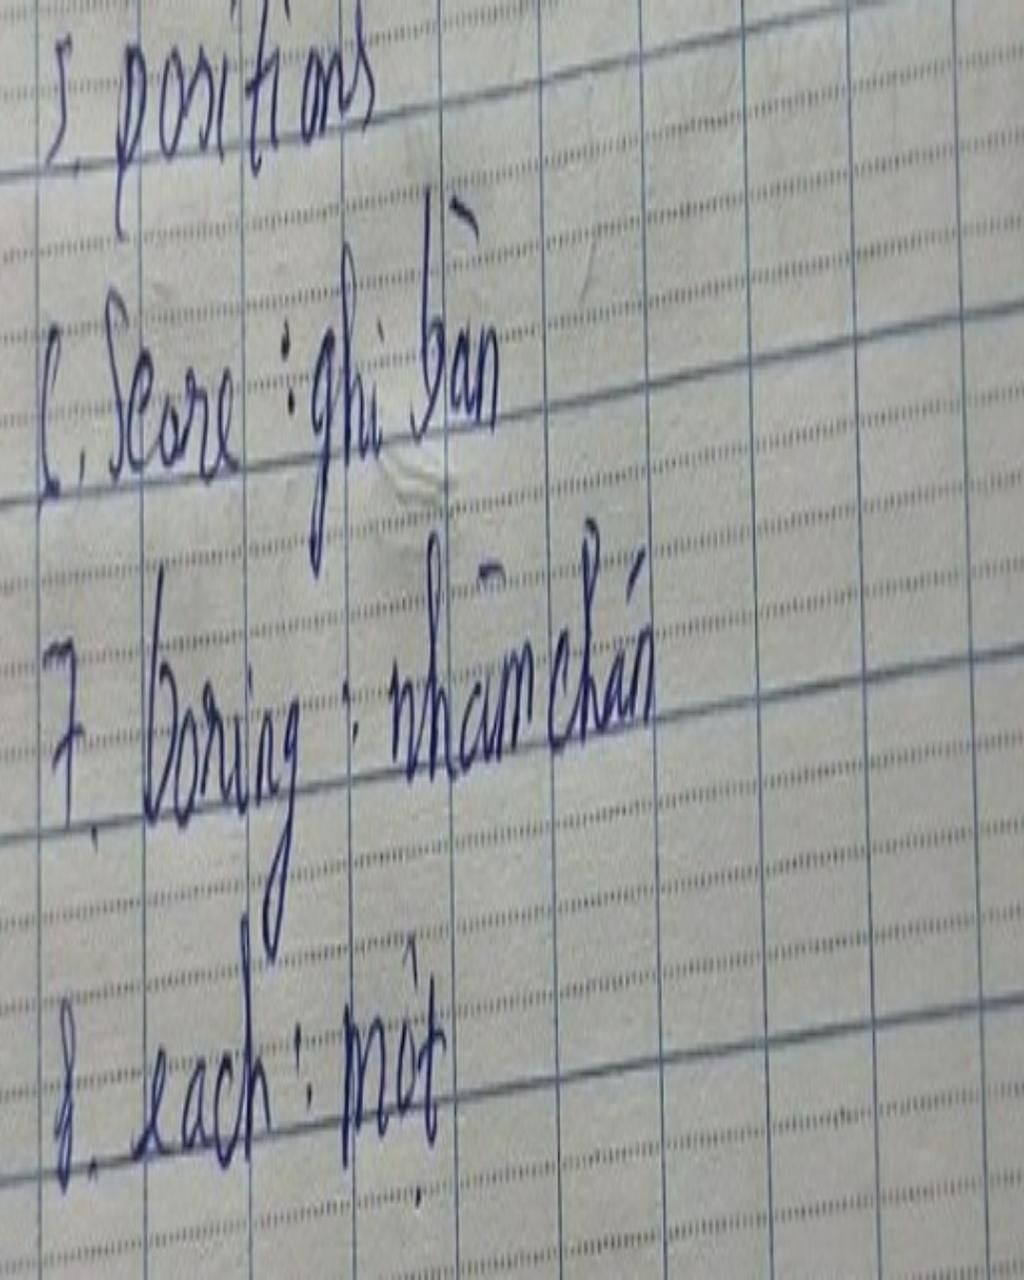 5. positions
6. Score : ghi bàn
7. boring : nhàm chán
8. each : một